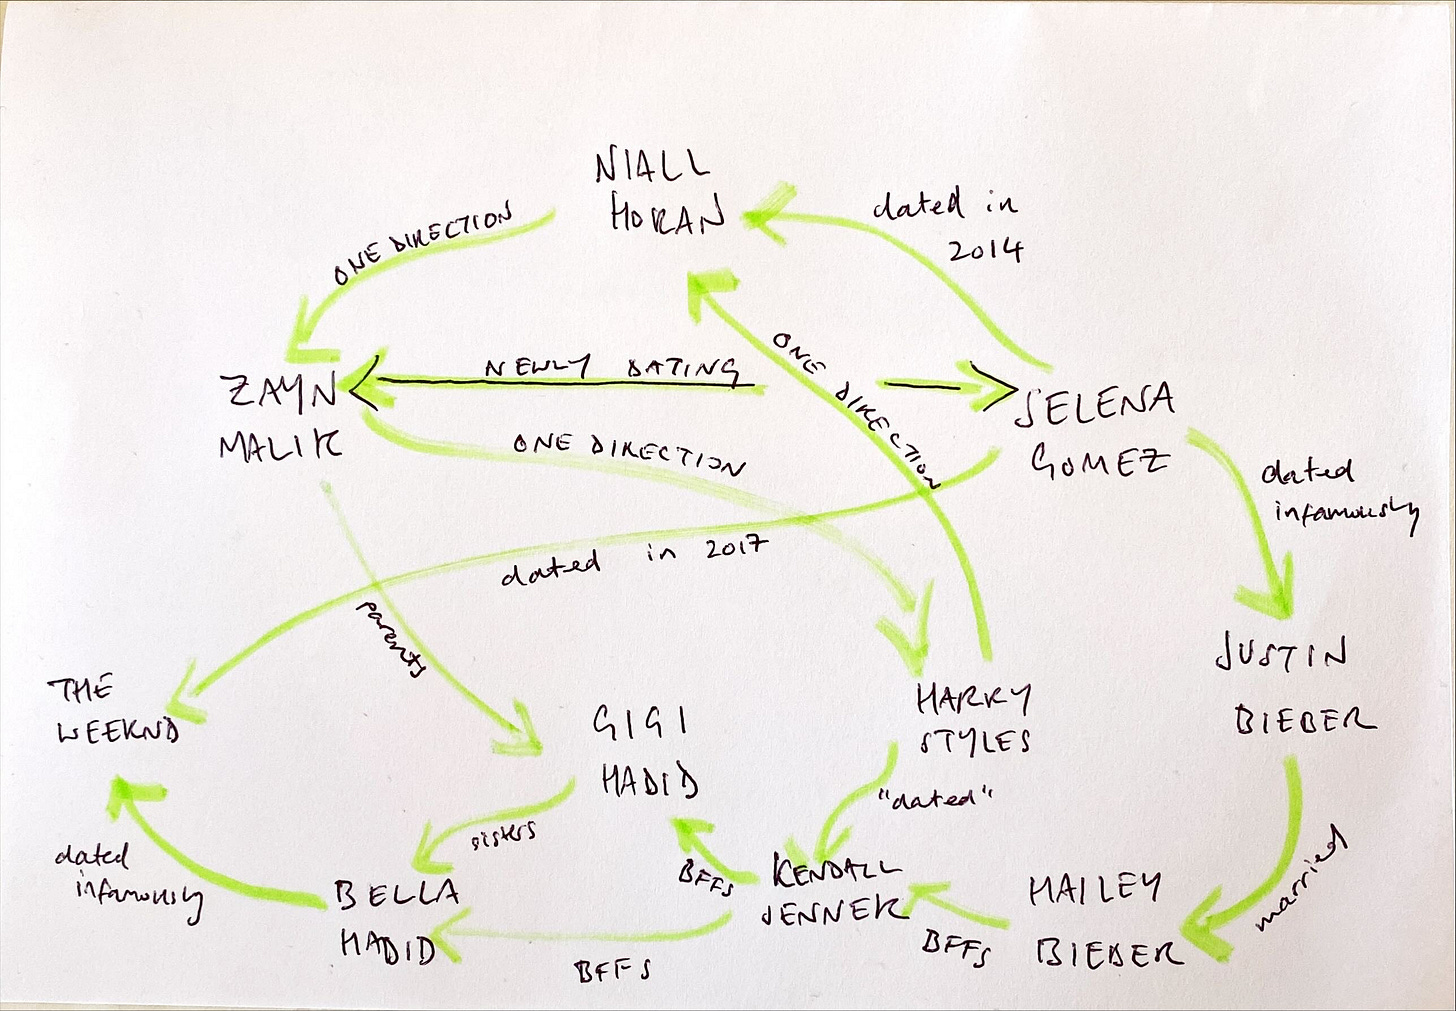 NIALL
HORAN
dated in
2014
ONE DIRECTION
NEWLY DATING
ONE DIRECTION
ZAYN
MALIK
SELENA
GOMEZ
ONE DIRECTION
dated
infamously
dated in 2017
parents
THE
WEEKND
GIGI
HADID
HARRY
STYLES
JUSTIN
BIEBER
"dated"
sisters
dated
infamously
BELLA
HADID
BFFs
KENDALL
JENNER
HAILEY
BIEBER
married
BFFs
BFFs